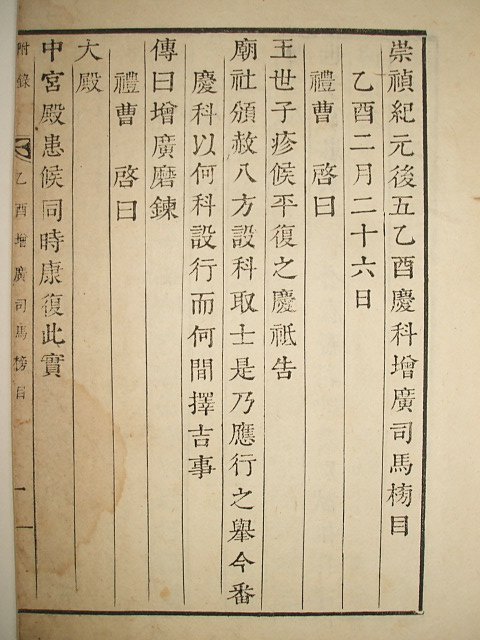 崇禎紀元後五乙酉慶科增廣司馬榜目
乙酉二月二十六日
禮曹 啓曰
王世子疹候平復之慶祗告
廟社頒赦八方設科取士是乃應行之擧今番
慶科以何科設行而何間擇吉事
傳曰增廣磨鍊
禮曹 啓曰
大殿
中宮殿患候同時康復此實
附錄 乙酉增廣司馬榜目 一